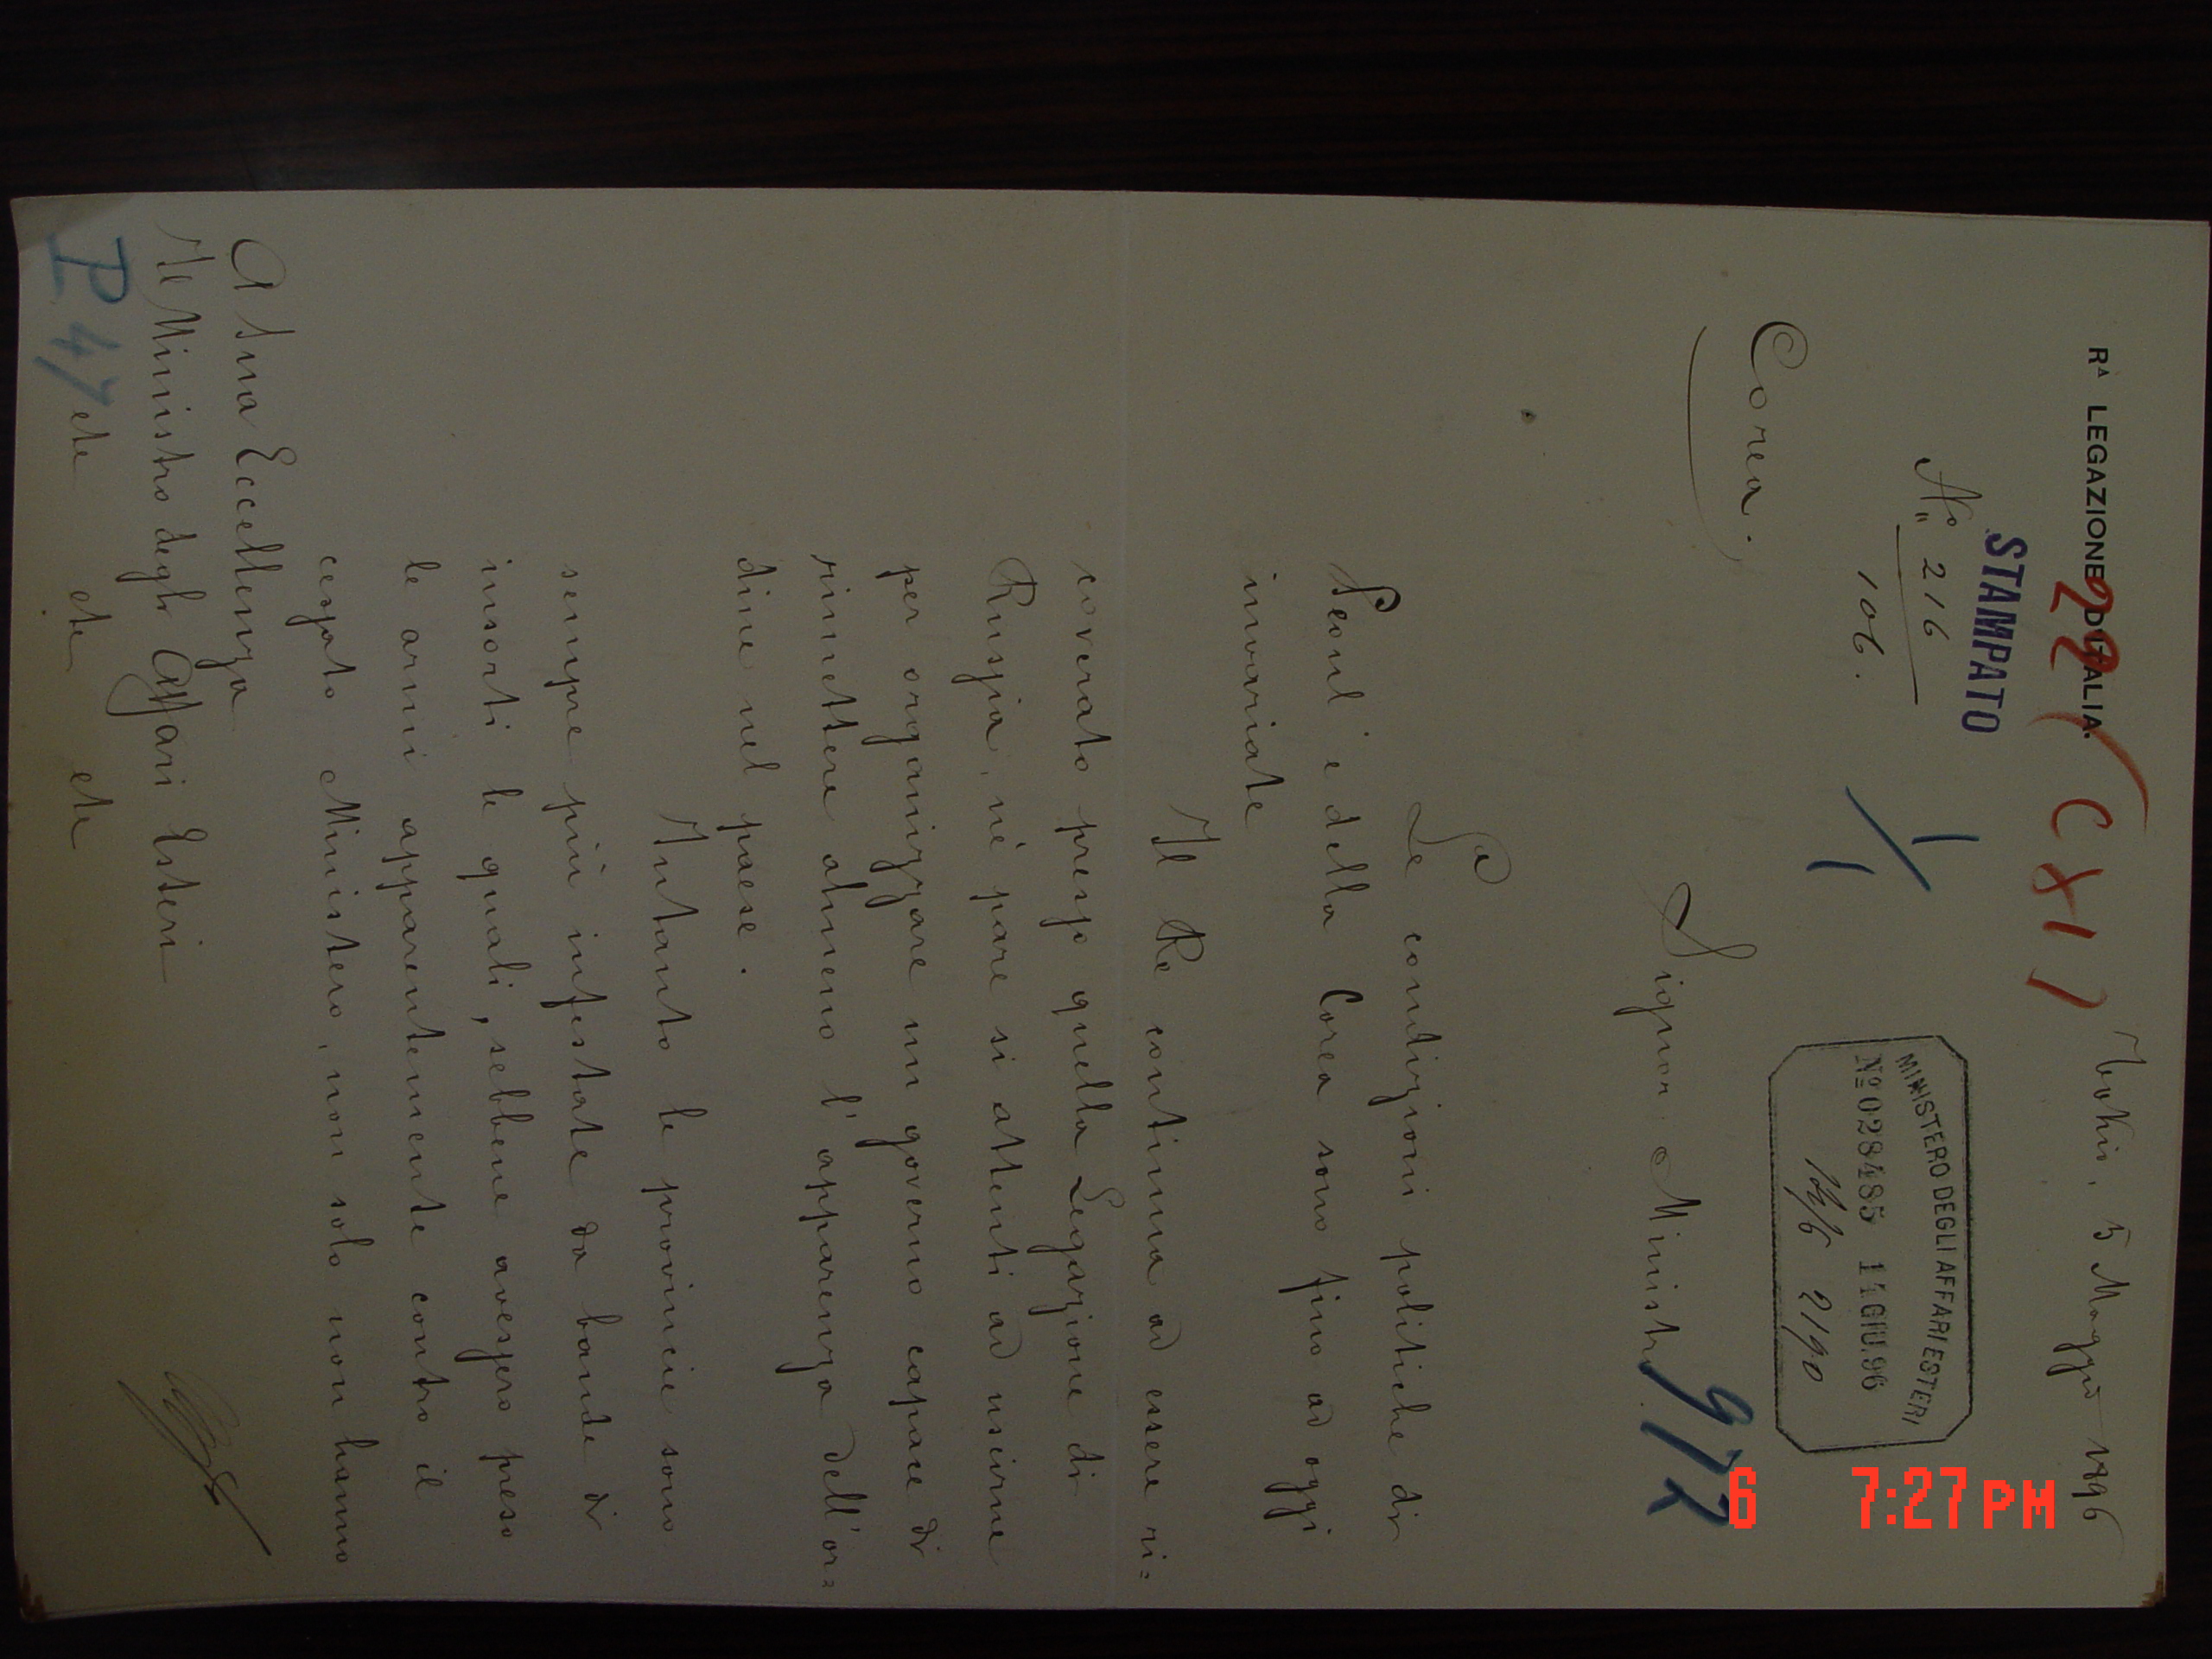 Rᴬ LEGAZIONE D'ITALIA.
22 / C XI )
Tokio, 5 Maggio 1896
STAMPATO
Nº 216
106.
1/1
MINISTERO DEGLI AFFARI ESTERI
Nº 028485 11 GIU. 96
2190
Corea.
Signor Ministro
972
Le condizioni politiche di
Seoul e della Corea sono fino ad oggi
invariate
Il Re continua ad essere ri=
coverato presso quella Legazione di
Russia, nè pare si attenti ad uscirne
per organizzare un governo capace di
rimettere almeno l'apparenza dell'or=
dine nel paese.
Intanto le provincie sono
sempre più infestate da bande di
insorti le quali, sebbene avessero preso
le armi apparentemente contro il
cessato Ministero, non solo non hanno
A Sua Eccellenza
Il Ministro degli Affari Esteri
etc etc etc
P 47
6 7:27 PM